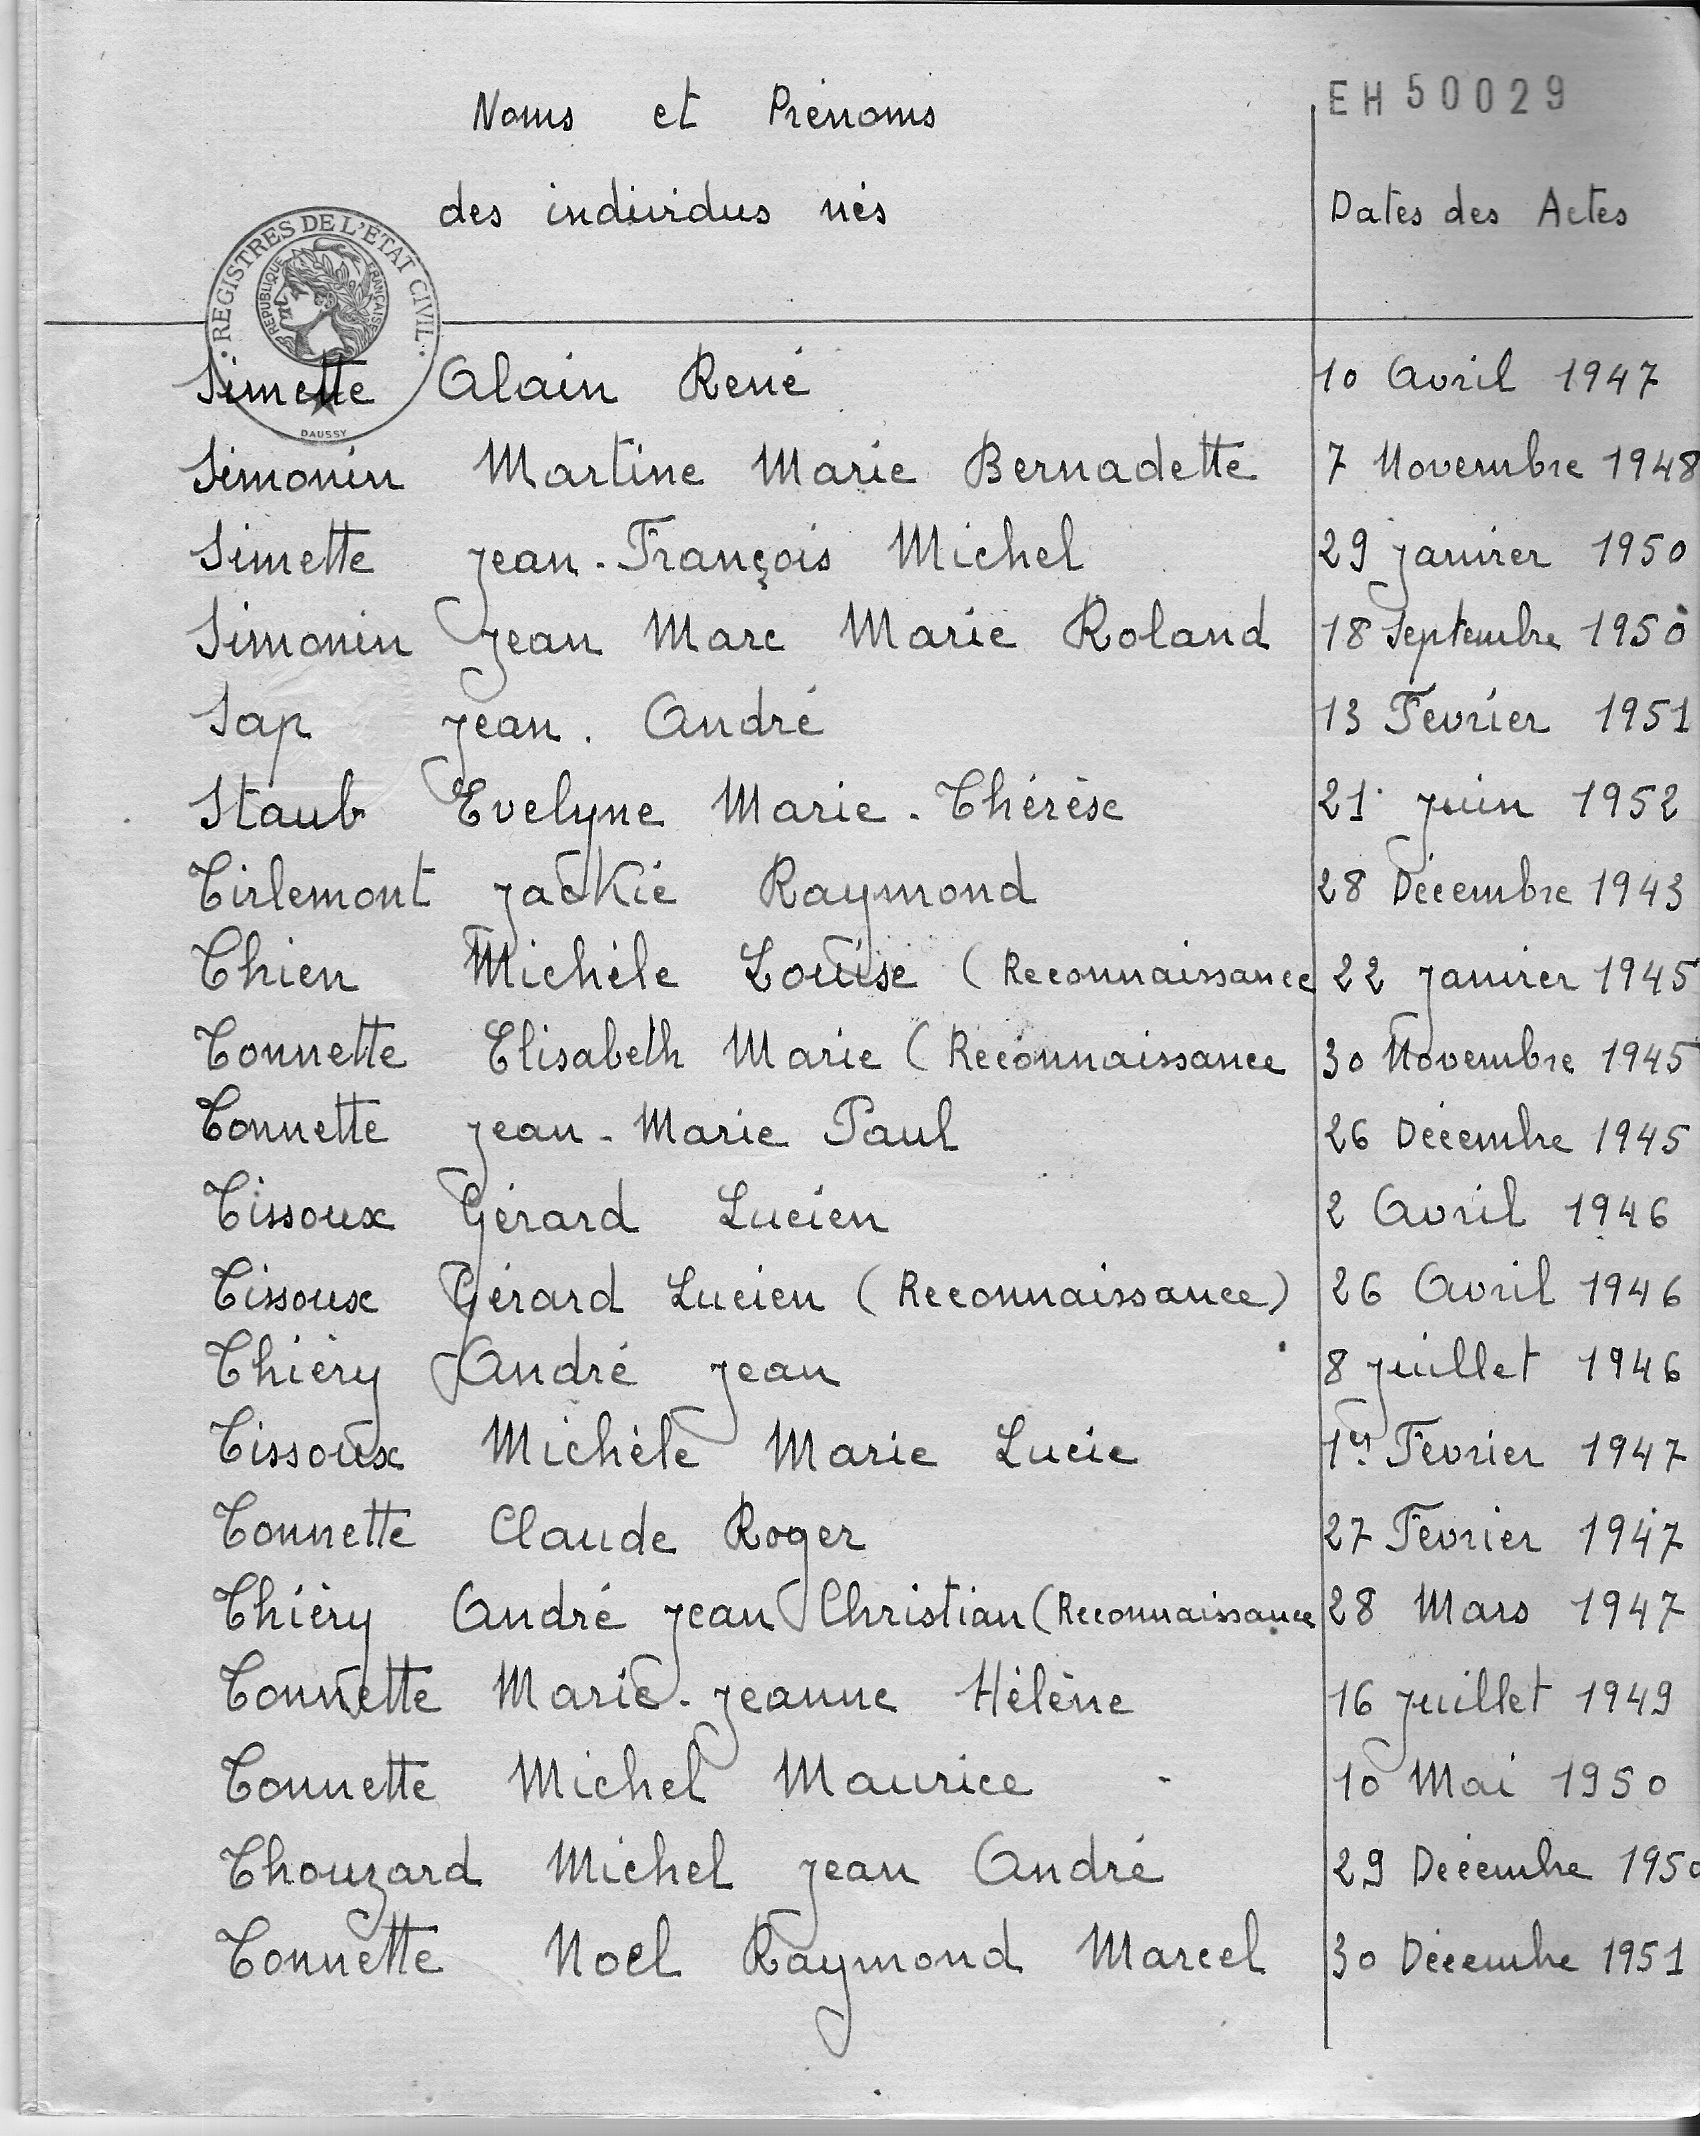 EH 50029
Noms et Prénoms
des individus nés
Dates des Actes
REGISTRES DE L'ÉTAT CIVIL
RÉPUBLIQUE FRANÇAISE
DAUSSY
Simette Alain René 10 Avril 1947
Simonin Martine Marie Bernadette 7 Novembre 1948
Simette Jean-François Michel 29 Janvier 1950
Simonin Jean Marc Marie Roland 18 Septembre 1950
Sap Jean. André 13 Février 1951
Staub Evelyne Marie-Thérèse 21 Juin 1952
Tirlemont Jackie Raymond 28 Décembre 1943
Thien Michèle Louise (Reconnaissance 22 Janvier 1945
Tonnette Elisabeth Marie (Reconnaissance 30 Novembre 1945
Tonnette Jean-Marie Paul 26 Décembre 1945
Tissoux Gérard Lucien 2 Avril 1946
Tissoux Gérard Lucien (Reconnaissance) 26 Avril 1946
Thiéry André Jean 8 Juillet 1946
Tissoux Michèle Marie Lucie 1er Février 1947
Tonnette Claude Roger 27 Février 1947
Thiéry André Jean Christian (Reconnaissance 28 Mars 1947
Tonnette Marie-Jeanne Hélène 16 Juillet 1949
Tonnette Michel Maurice 10 Mai 1950
Thouzard Michel Jean André 29 Décembre 1950
Tonnette Noël Raymond Marcel 30 Décembre 1951